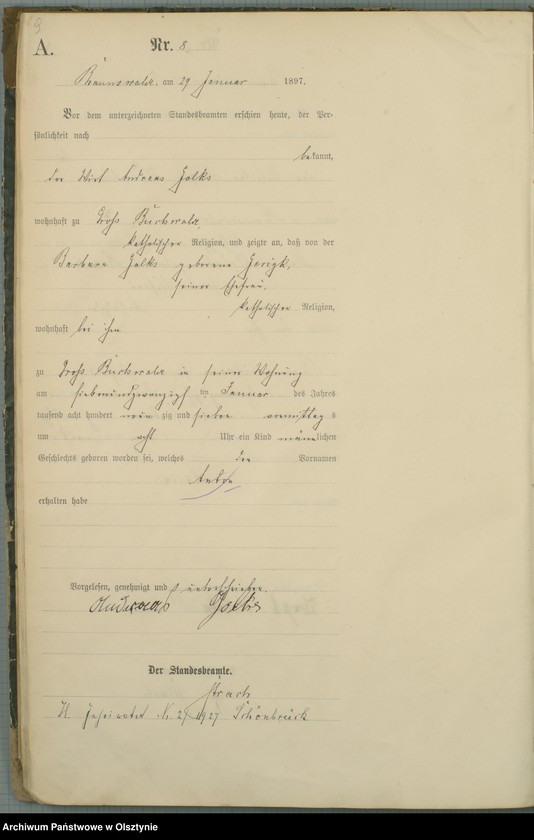 A.
Nr. 8
Braunswalde, am 29 Januar 1897.
Vor dem unterzeichneten Standesbeamten erschien heute, der Per-
sönlichkeit nach
bekannt,
der Wirt Andreas Jolks
wohnhaft zu Groß Buchwalde,
katholischer Religion, und zeigte an, daß von der
Barbara Jolks geborene Jerigk,
seiner Ehefrau,
katholischer Religion,
wohnhaft bei ihm
zu Groß Buchwalde in seiner Wohnung
am siebenundzwanzigsten Januar des Jahres
tausend acht hundert neun zig und sieben vormittags
um acht Uhr ein Kind männlichen
Geschlechts geboren worden sei, welches den Vornamen
Anton
erhalten habe
Vorgelesen, genehmigt und unterschrieben.
Andreas
Der Standesbeamte.
H. N. 2/1927 Schönbrück
Archiwum Państwowe w Olsztynie